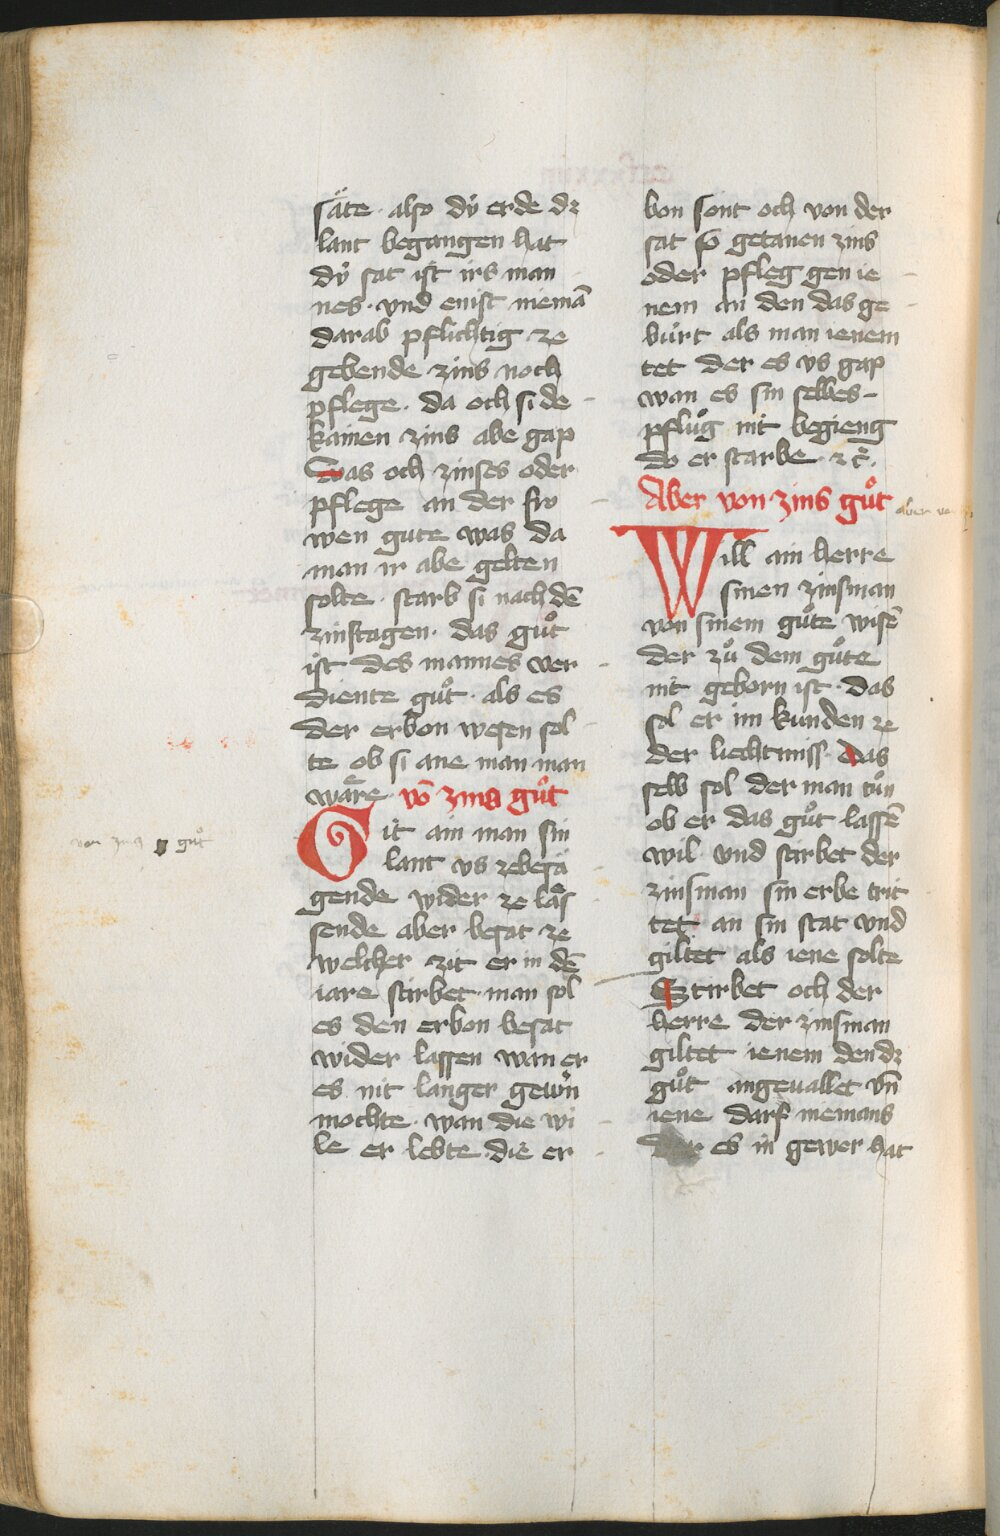 säte · also dÿ erde dz
lant begangen hat
dÿ sat ist irs man
nes · vnd enist niemā
darab pflichtig ze
gebende zins noch
pflege · da och si de
kainen zins abe gap
Was och zinses oder
pflege an der fro
wen gute was da
man ir abe gelten
solte · starb si nach dē
zinstagen · das guͦt
ist des mannes ver
diente guͦt · als es
der erbon wesen sol
te ob si ane man man
waͤre · vō zins guͦt
Git ain man sin
lant vs zebegā
gende wider ze laͤs
sende aber besat ze
welcher zit er in dē
iare stirbet · man sol
es den erbon besat
wider lassen wan er
es nit langer gewon
mochte · wan die wi
le er lebte die er
von zins guͦt
bon sont och von der
sat so getanen zins
oder pfleg gen ie
nem an den das ge
bürt als man ienem
tet der es vs gap
wan es sin selbes
pfluͦg nit begieng
do er starbe · ꝛc̄ ·
Aber von zins guͦt
aber von
Will ain herre
sinen zinsman
von sinem guͦte wisē
der zuͦ dem guͦte
nit geborn ist · das
sol er im kunden ze
der liechtmiss · das
selb sol der man tuͦn
ob er das guͦt lassē
wil vnd stirbet der
zinsman sin erbe trit
tet an sin stat vnd
giltet als iene solte
Stirbet och der
herre der zinsman
giltet ienem den dz
guͦt angeuallet vn̄
iene darf niemans
es in gewer hat